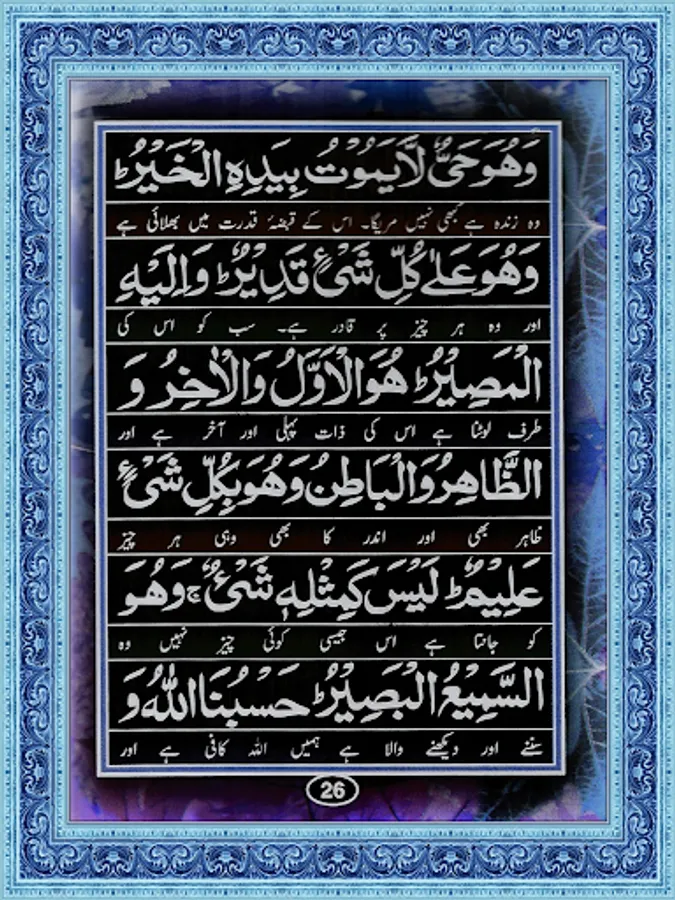 وَهُوَ حَیٌّ لَّا یَمُوْتُ بِیَدِهِ الْخَیْرُ ؕ
وہ زندہ ہے کبھی نہیں مریگا۔ اس کے قبضۂ قدرت میں بھلائی ہے
وَهُوَ عَلٰی كُلِّ شَیْءٍ قَدِیْرٌ ؕ وَاِلَیْهِ
اور وہ ہر چیز پر قادر ہے۔ سب کو اس کی
الْمَصِیْرُ ؕ هُوَ الْاَوَّلُ وَالْاٰخِرُ وَ
طرف لوٹنا ہے اس کی ذات پہلی اور آخر ہے اور
الظَّاهِرُ وَالْبَاطِنُ وَهُوَ بِكُلِّ شَیْءٍ
ظاہر بھی اور اندر کا بھی وہی ہر چیز
عَلِیْمٌ ؕ لَیْسَ كَمِثْلِهٖ شَیْءٌ ۚ وَهُوَ
کو جانتا ہے اس جیسی کوئی چیز نہیں وہ
السَّمِیْعُ الْبَصِیْرُ ؕ حَسْبُنَا اللّٰهُ وَ
سننے اور دیکھنے والا ہے ہمیں اللہ کافی ہے اور
26